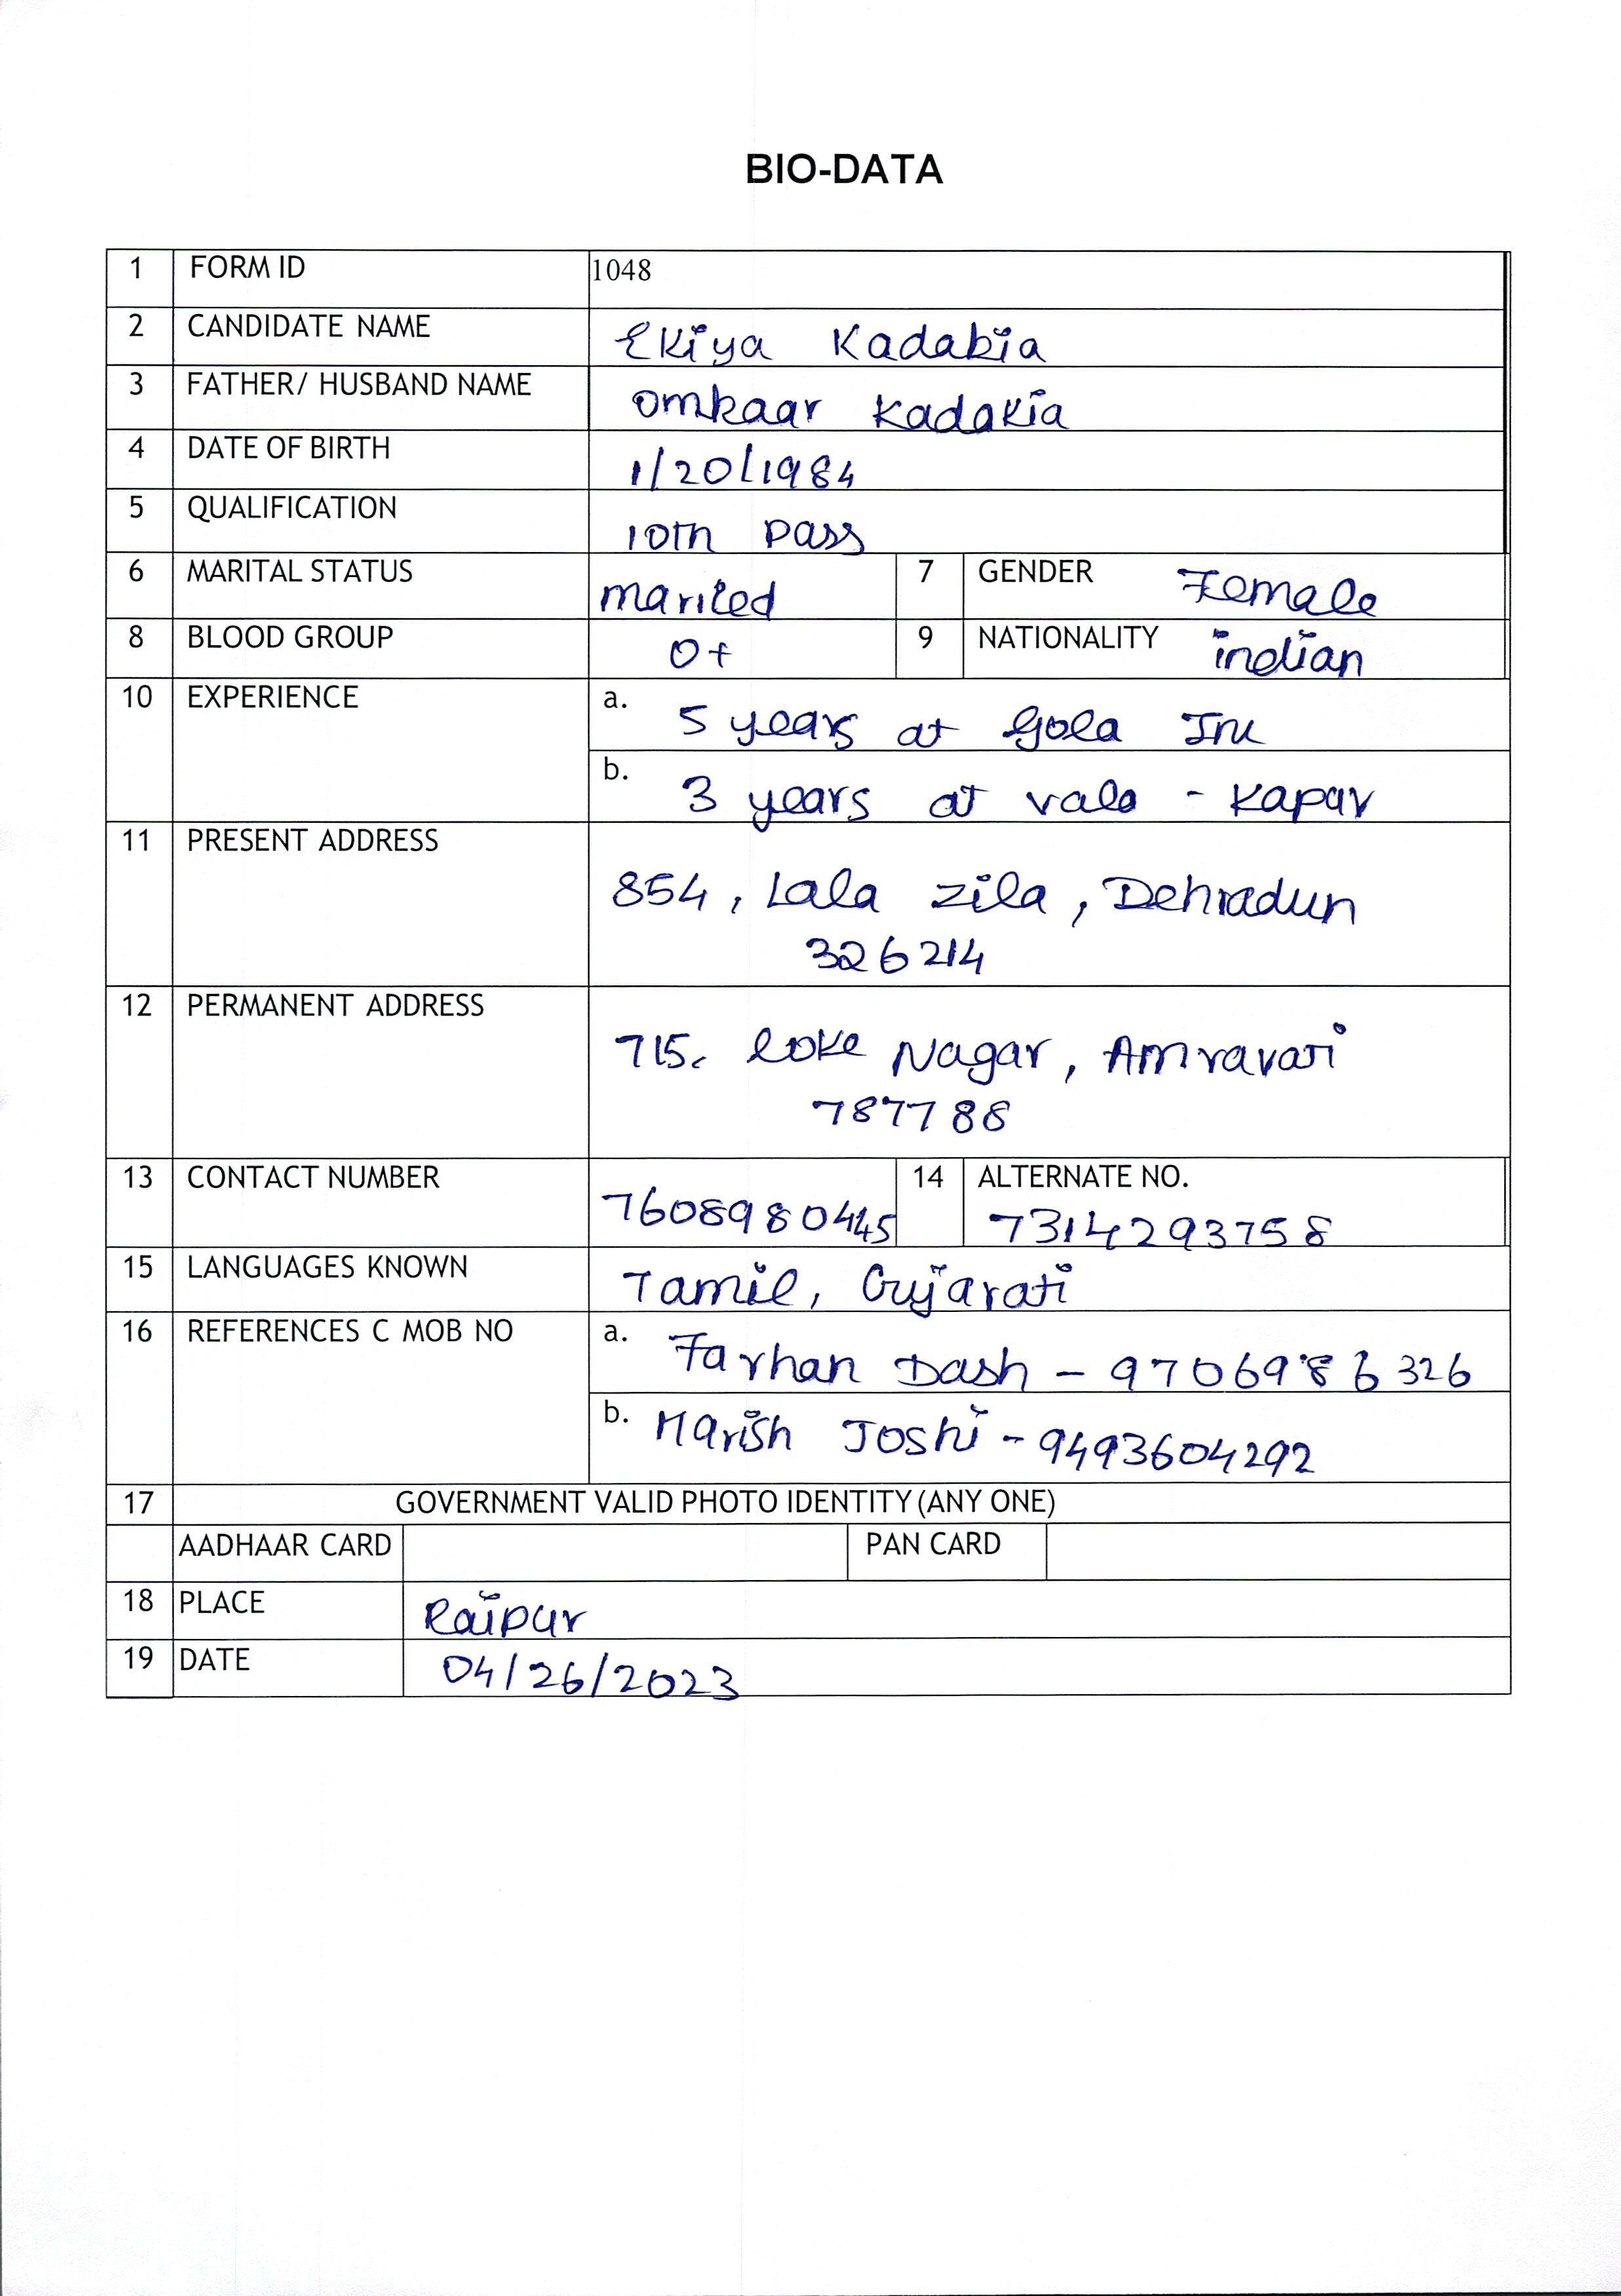 BIO-DATA
1 FORM ID 1048
2 CANDIDATE NAME Ekiya Kadabia
3 FATHER/ HUSBAND NAME Omkaar Kadakia
4 DATE OF BIRTH 1/20/1984
5 QUALIFICATION 10th pass
6 MARITAL STATUS Maried 7 GENDER Female
8 BLOOD GROUP O+ 9 NATIONALITY indian
10 EXPERIENCE a. 5 years at Gola Inc
b. 3 years at vala - Kapar
11 PRESENT ADDRESS
854, Lala Zila, Dehradun
326214
12 PERMANENT ADDRESS
715, Loke Nagar, Amravati
787788
13 CONTACT NUMBER 7608980445 14 ALTERNATE NO.
7314293758
15 LANGUAGES KNOWN Tamil, Gujarati
16 REFERENCES C MOB NO a. Farhan Dash - 9706986326
b. Harish Joshi - 9493604292
17 GOVERNMENT VALID PHOTO IDENTITY (ANY ONE)
AADHAAR CARD PAN CARD
18 PLACE Raipur
19 DATE 04/26/2023